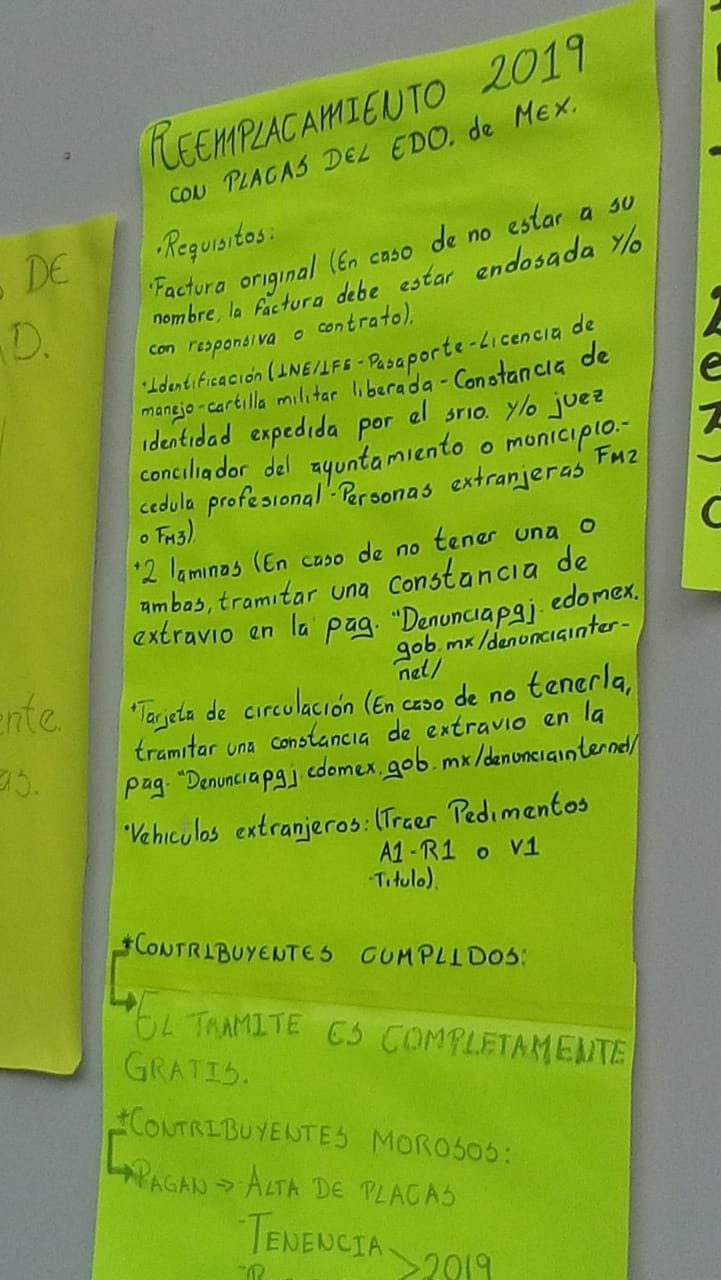 REEMPLACAMIENTO 2019
CON PLACAS DEL EDO. de MEX.
·Requisitos:
·Factura original (En caso de no estar a su
nombre, la factura debe estar endosada y/o
con responsiva o contrato).
·Identificación (INE/IFE-Pasaporte-Licencia de
manejo-cartilla militar liberada-Constancia de
identidad expedida por el srio. y/o juez
conciliador del ayuntamiento o municipio.-
cedula profesional-Personas extranjeras FM2
o FM3)
·2 laminas (En caso de no tener una o
ambas, tramitar una constancia de
extravio en la pag. "Denunciapgj.edomex.
gob.mx/denunciainter-
net/
·Tarjeta de circulación (En caso de no tenerla,
tramitar una constancia de extravio en la
pag. "Denunciapgj.edomex.gob.mx/denunciainternet/
·Vehiculos extranjeros: (Traer Pedimentos
A1-R1 o V1
·Titulo).
*CONTRIBUYENTES CUMPLIDOS:
EL TRAMITE ES COMPLETAMENTE
GRATIS.
*CONTRIBUYENTES MOROSOS:
PAGAN ⇒ ALTA DE PLACAS
-TENENCIA
>2019
DE
D.
ente.
as.